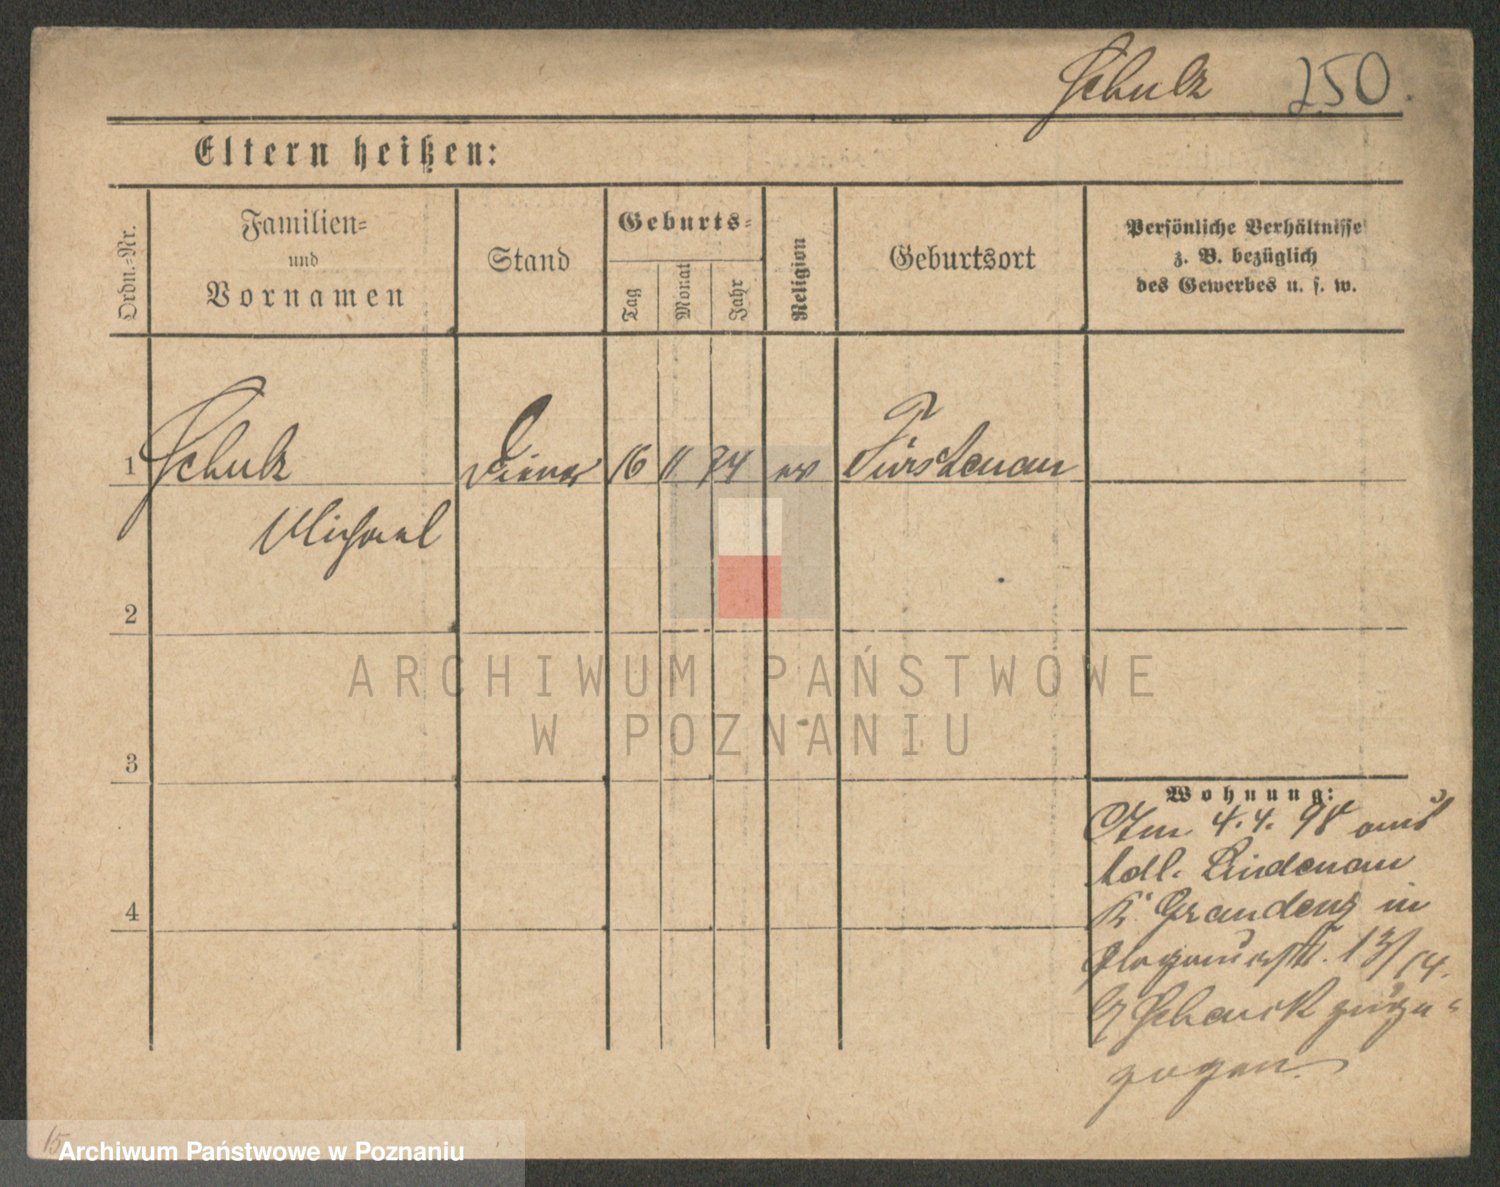 Schulz 250.
Eltern heißen:
Ordn.-Nr.
Familien-
und
Vornamen
Stand
Geburts-
Tag
Monat
Jahr
Religion
Geburtsort
Persönliche Verhältnisse
z. B. bezüglich
des Gewerbes u. s. w.
1 Schulz Diener 16 11 74 ev Fürstenau
Michael
2
3
4
Wohnung:
Am 4.4. 98 aus
Adl. Lindenau
K. Graudenz in
Glogauerstr. 13/14.
b/ Schenck zuge-
zogen.
ARCHIWUM PAŃSTWOWE
W POZNANIU
15
Archiwum Państwowe w Poznaniu